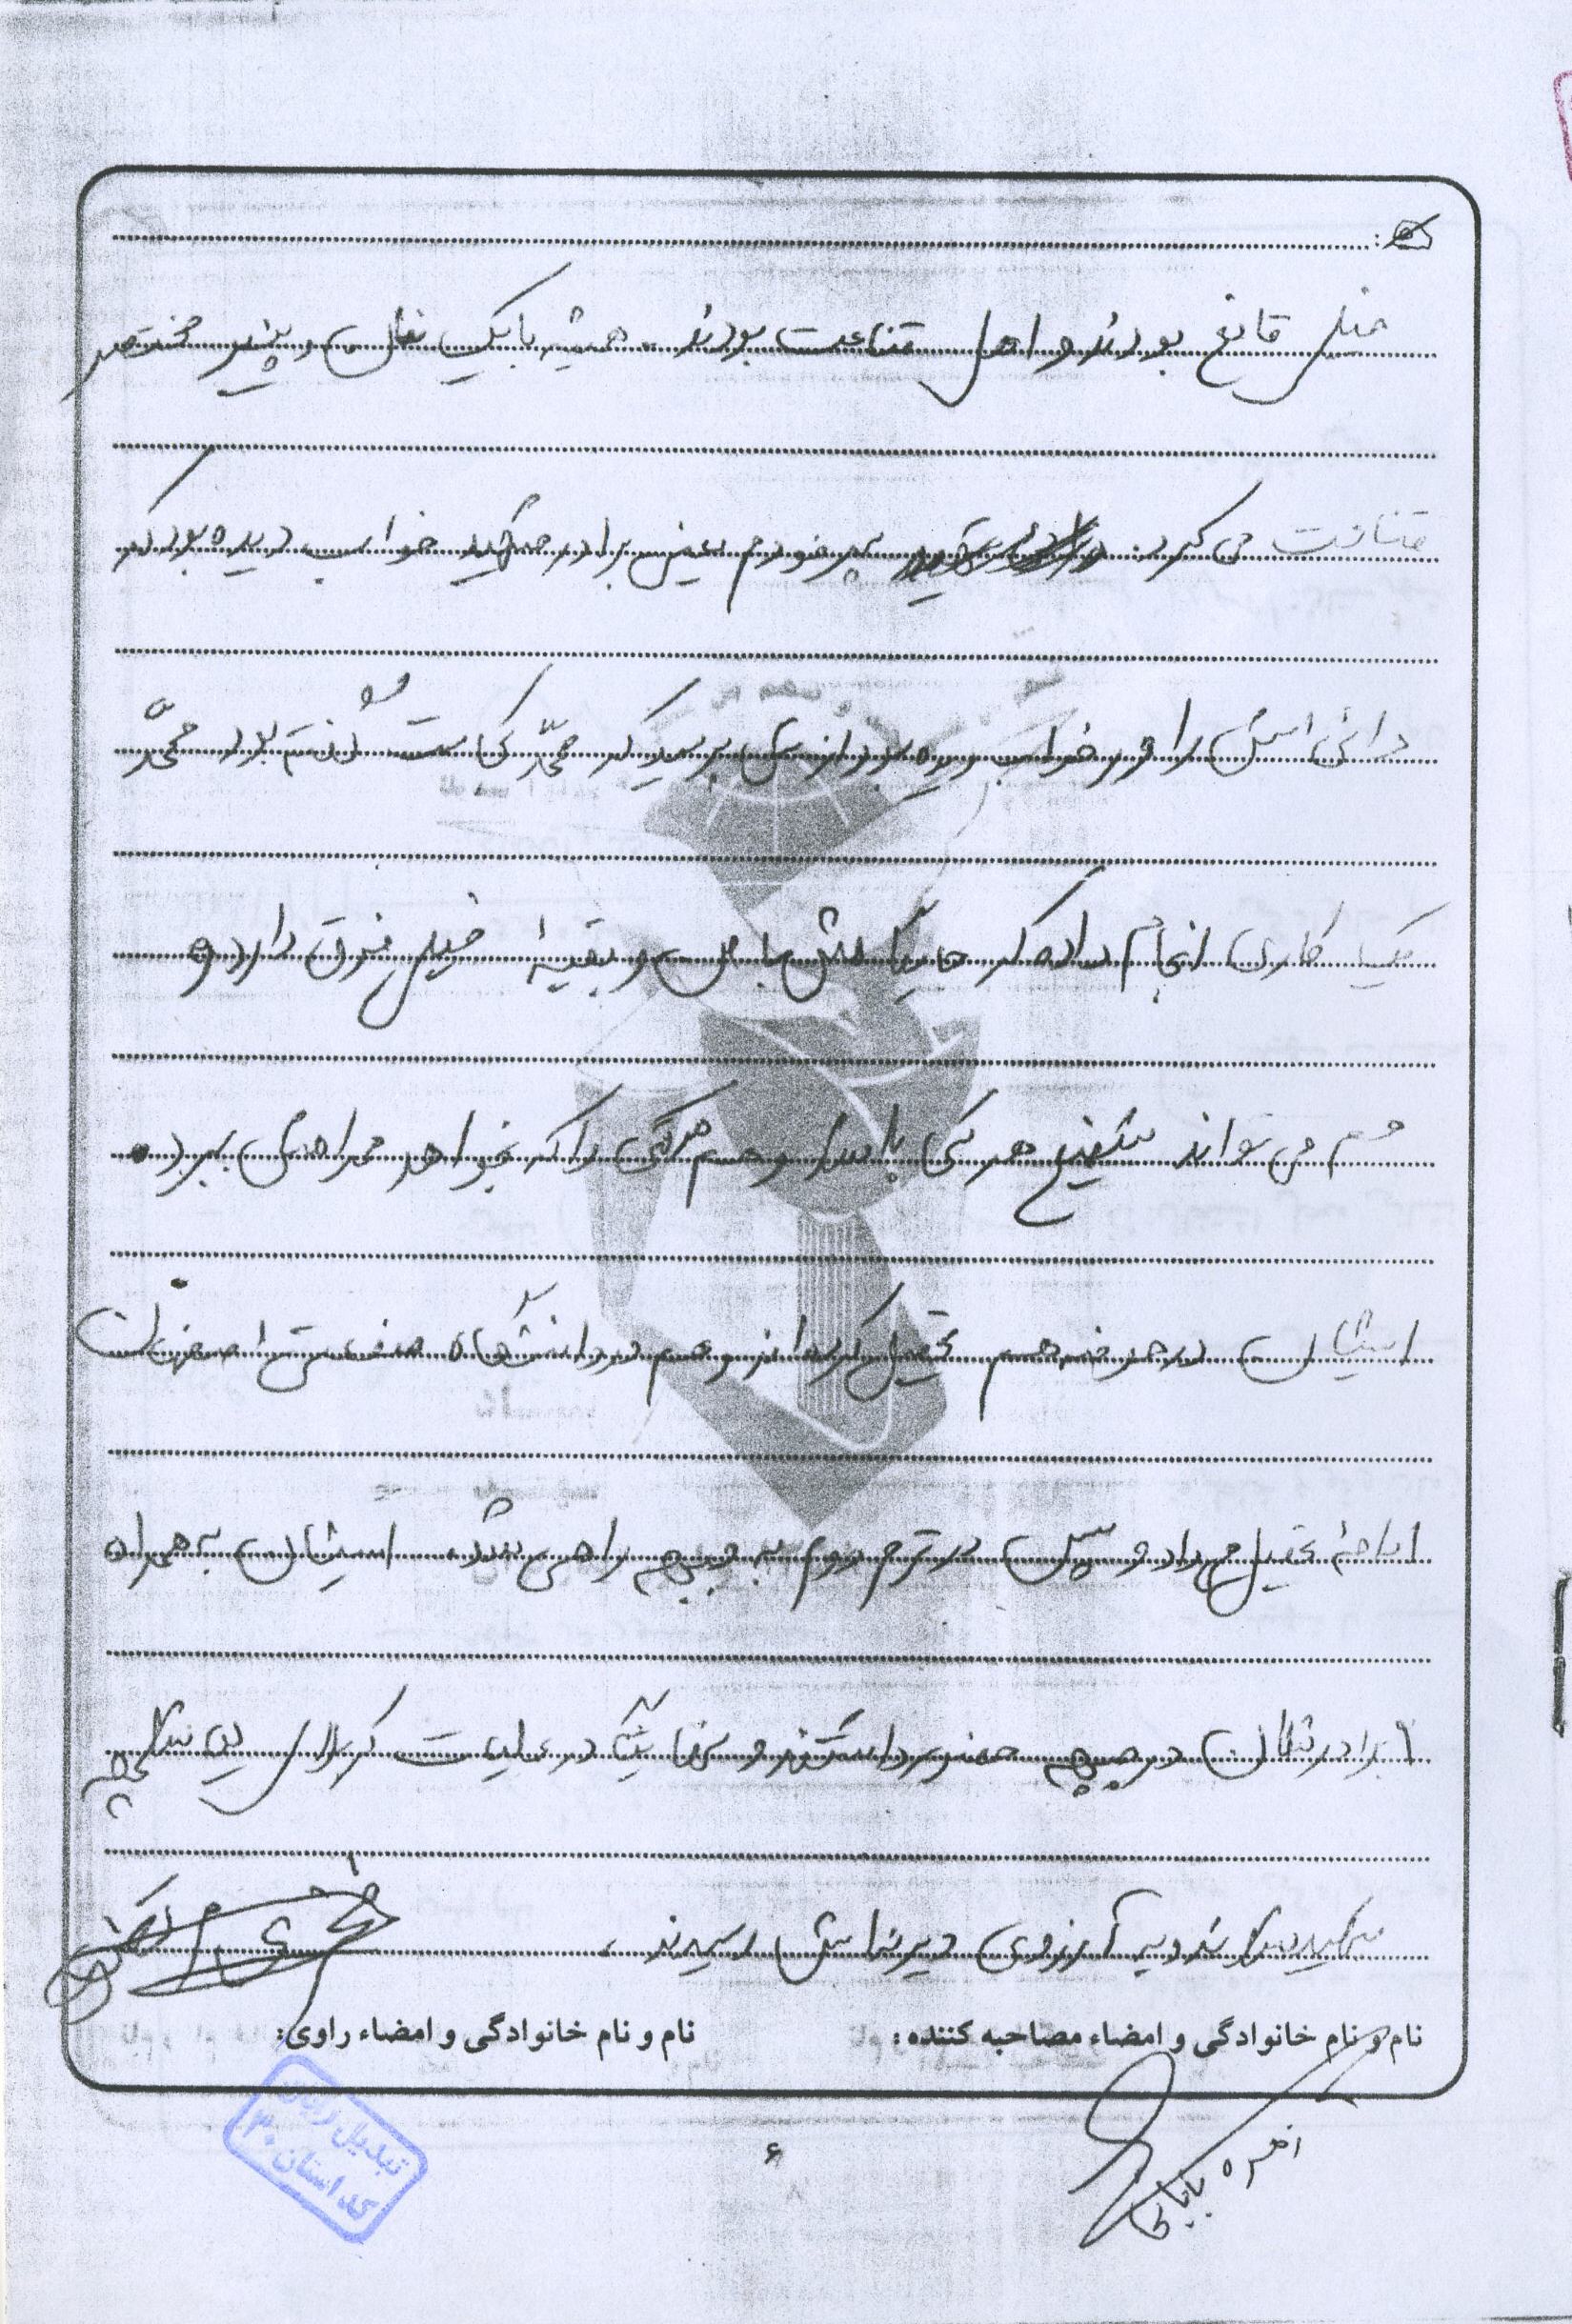 خیلی قانع بودند و اهل قناعت بودند. همیشه با یک نان و پنیر مختصر
قناعت می کرد. پسر خودم یعنی برادر شهید خواب دیده بود که
دائی اش را در خواب دیده بود از ش پرسید که محمّد کجاست گفته بود محمّد
یک کاری انجام داده که جایگاهش با من و بقیه خیلی فرق دارد و
هم می تواند شفیع هر کسی باشد و هم هرکسی را که بخواهد همراهش ببرد.
ایشان در حوزه هم تحصیل کرده اند و هم در دانشگاه صنعتی اصفهان
ادامه تحصیل می داد و سپس در ترم دوم به جبهه راهی شد. ایشان به همراه
برادرشان در جبهه حضور داشتند و نهایتاً در عملیات کربلای شلمچه
شهید شدند و به آرزوی دیرینه اش رسیدند.
نام و نام خانوادگی و امضاء مصاحبه کننده: نام و نام خانوادگی و امضاء راوی:
بابائی
۶
تبدیل
کد استان ۳۰